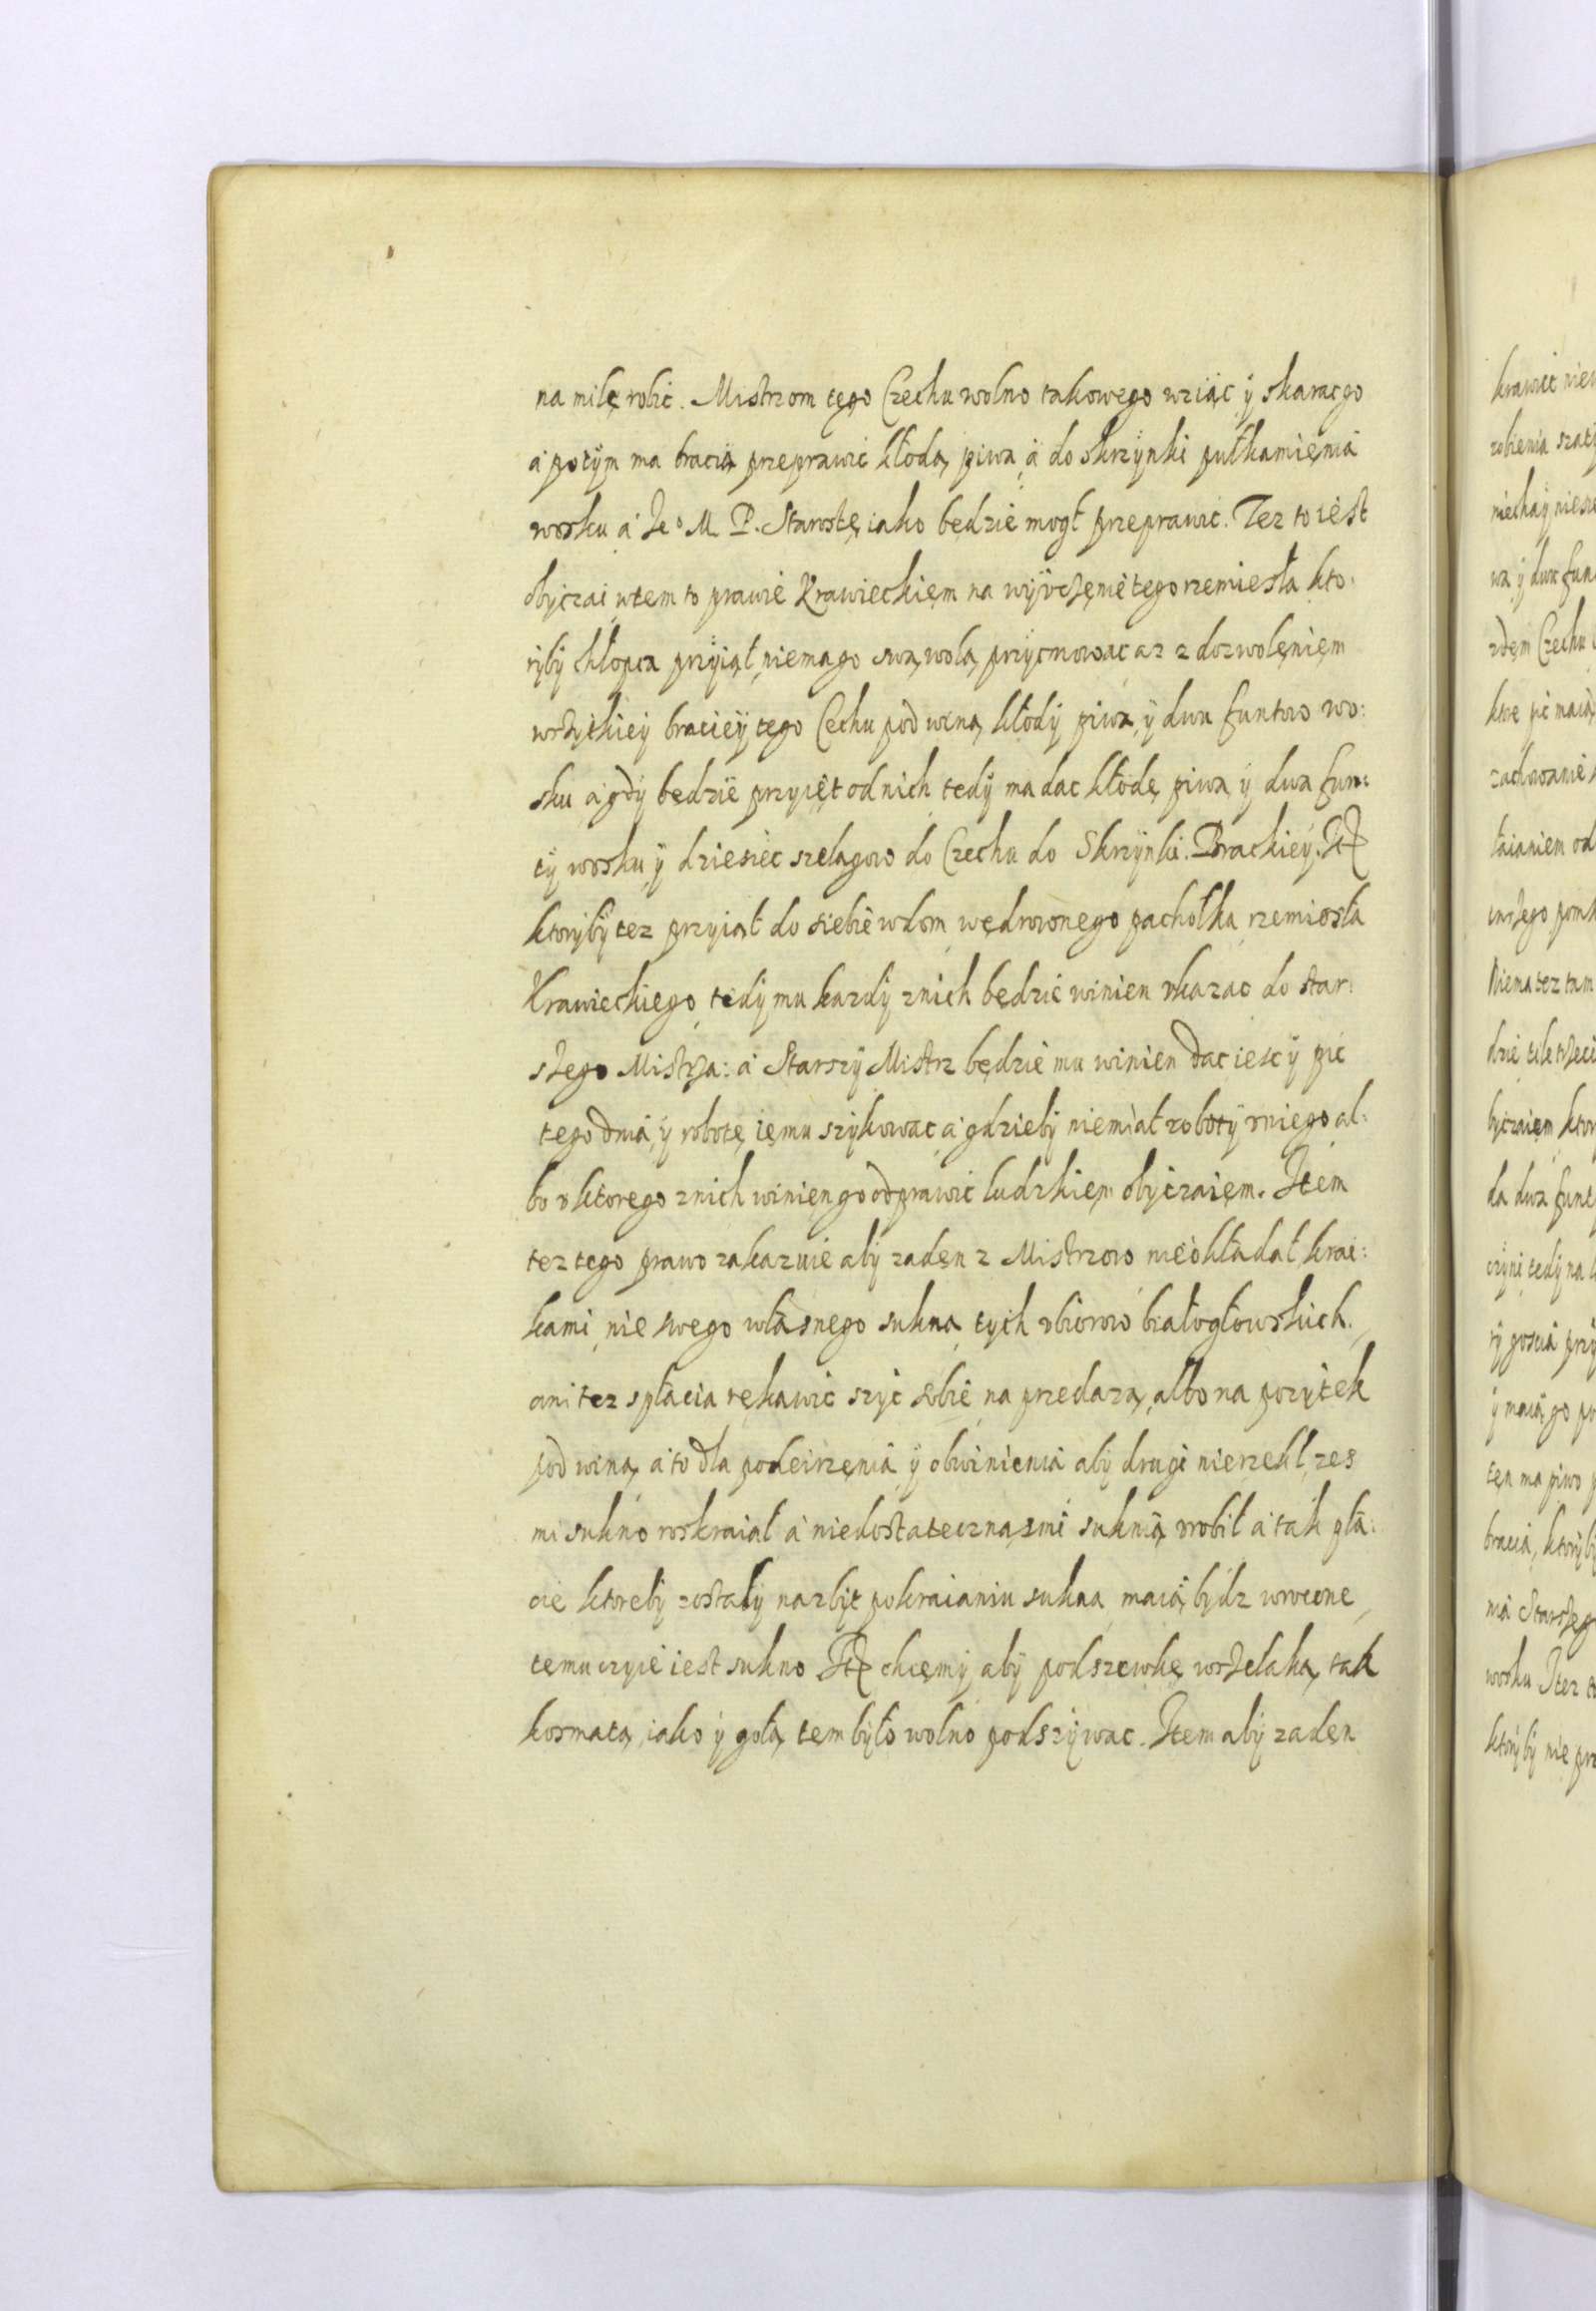 na milę robić. Mistrzom tego Czechu wolno takowego wziąc ÿ skaracgo
á potÿm ma bracią przeprawić kłodą piwa á do skrzÿnki pułkamięniá
wosku á Jeº M P. Starostę iako będzie mogł przeprawic. Tez to iest
obÿczai wtem to prawie Krawieckięm na wÿvczęnie tego rzemiesła kto:
rÿbÿ chłopca przÿiął, niema go swą wolą przÿcmowac az z dozwolęnięm
wszÿtkiéÿ braciéÿ tego Cechu pod winą kłodÿ piwa ÿ dwu funtow wo:
sku á gdÿ będzie przyięt od nich tedÿ ma dac kłodę piwa ÿ dwa fun:
tÿ wosku ÿ dziesięc szelagow do Czechu do Skrzÿnki Brackiéÿ. It
ktorÿbÿ tez przyiął do siebie wdom wędrownego pachołka rzemiosła
Krawieckiego tedÿ mu kazdÿ znich będzie winien vkazac do star:
szego Mistrza: á Starszÿ Mistrz będzie mu winien dac iesc ÿ pic
tego dniá ÿ robotę ięmu szÿkowac á gdziebÿ niemiał robotÿ vniego al:
bo v ktorego znich winięn go odprawic ludzkięm obÿczaięm. Item
tez tego prawo zakazuie abÿ zadęn z Mistrzow nieókładał krai:
kami nie swego własnego sukna tych vbiorow białogłowskich.
ani tez spłacia rękawic szÿc sobie na przedazą albo na pozÿtek
pod winą á to dla podeirzęniá ÿ obwinieniá abÿ drugi nierzekł zes
mi sukno roskraiał á niedostateczną smi suknią vrobił á tak płá:
cie ktorebÿ zostałÿ nazbÿt pokraianiu sukna maią bÿdz wrocone
tęmu czyie iest sukno It chcęmÿ abÿ podszewkę wszelaką tak
kosmatą iako ÿ gołą tem bÿło wolno podszÿwac. Item abÿ zadęn